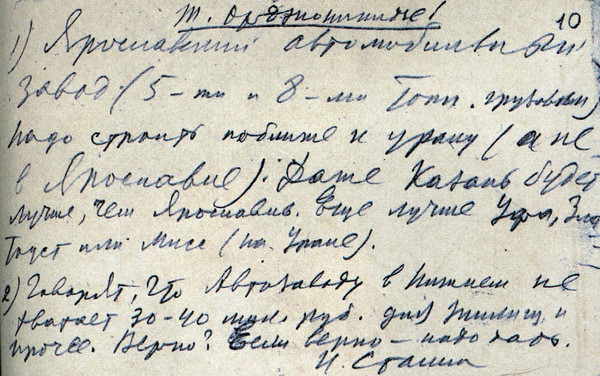 Т. Орджоникидзе! 10
1) Ярославский автомобильный
завод (5-ти и 8-ми тонн. грузовики)
надо строить поближе к Уралу (а не
в Ярославле). Даже Казань будет
лучше, чем Ярославль. Еще лучше Уфа, Зла
тоуст или Мисс (на Урале).
2) Говорят, что Автозаводу в Нижнем не
хватает 30-40 мил. руб. для жилищ и
проче. Верно? Если верно – надо дать.
И. Сталин